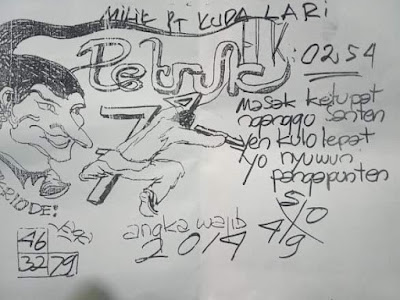 MILIK PT KUDA LARI
Petruk HK: 0254
7
masak ketupat
nganggo santen
yen kulo lepat
yo nyuwun
pangapunten
angka wajib
2014
5/0
4/9
46
32 79